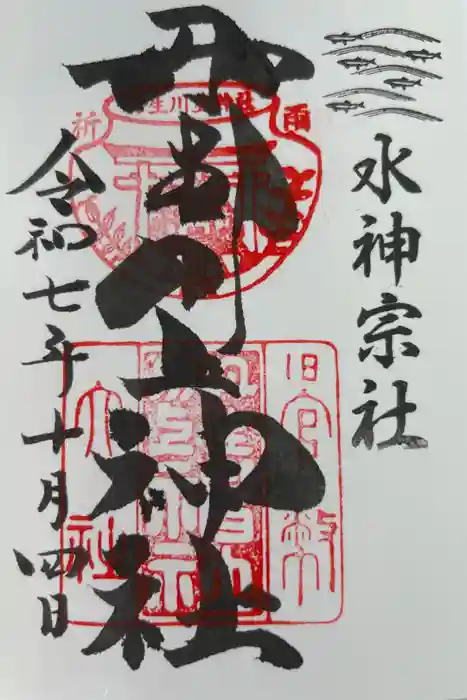 水神宗社
丹生川上神社
令和七年十月四日
丹生川上神社
祈雨
旧官幣
大社